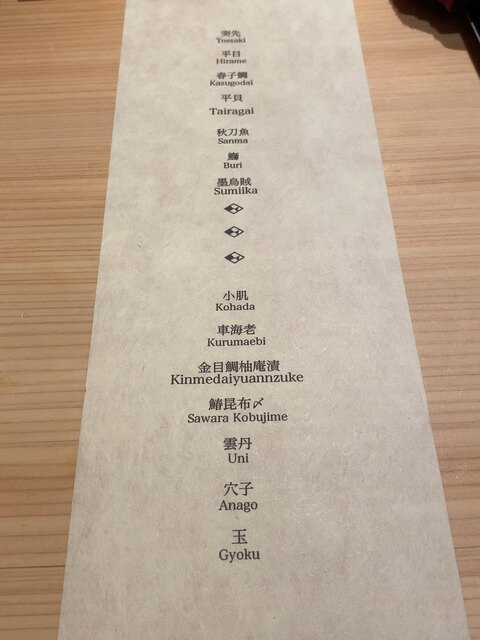 突先
Tossaki
平目
Hirame
春子鯛
Kasugodai
平貝
Tairagai
秋刀魚
Sanma
鰤
Buri
墨烏賊
Sumiika
小肌
Kohada
車海老
Kurumaebi
金目鯛柚庵漬
Kinmedaiyuannzuke
鰆昆布〆
Sawara Kobujime
雲丹
Uni
穴子
Anago
玉
Gyoku